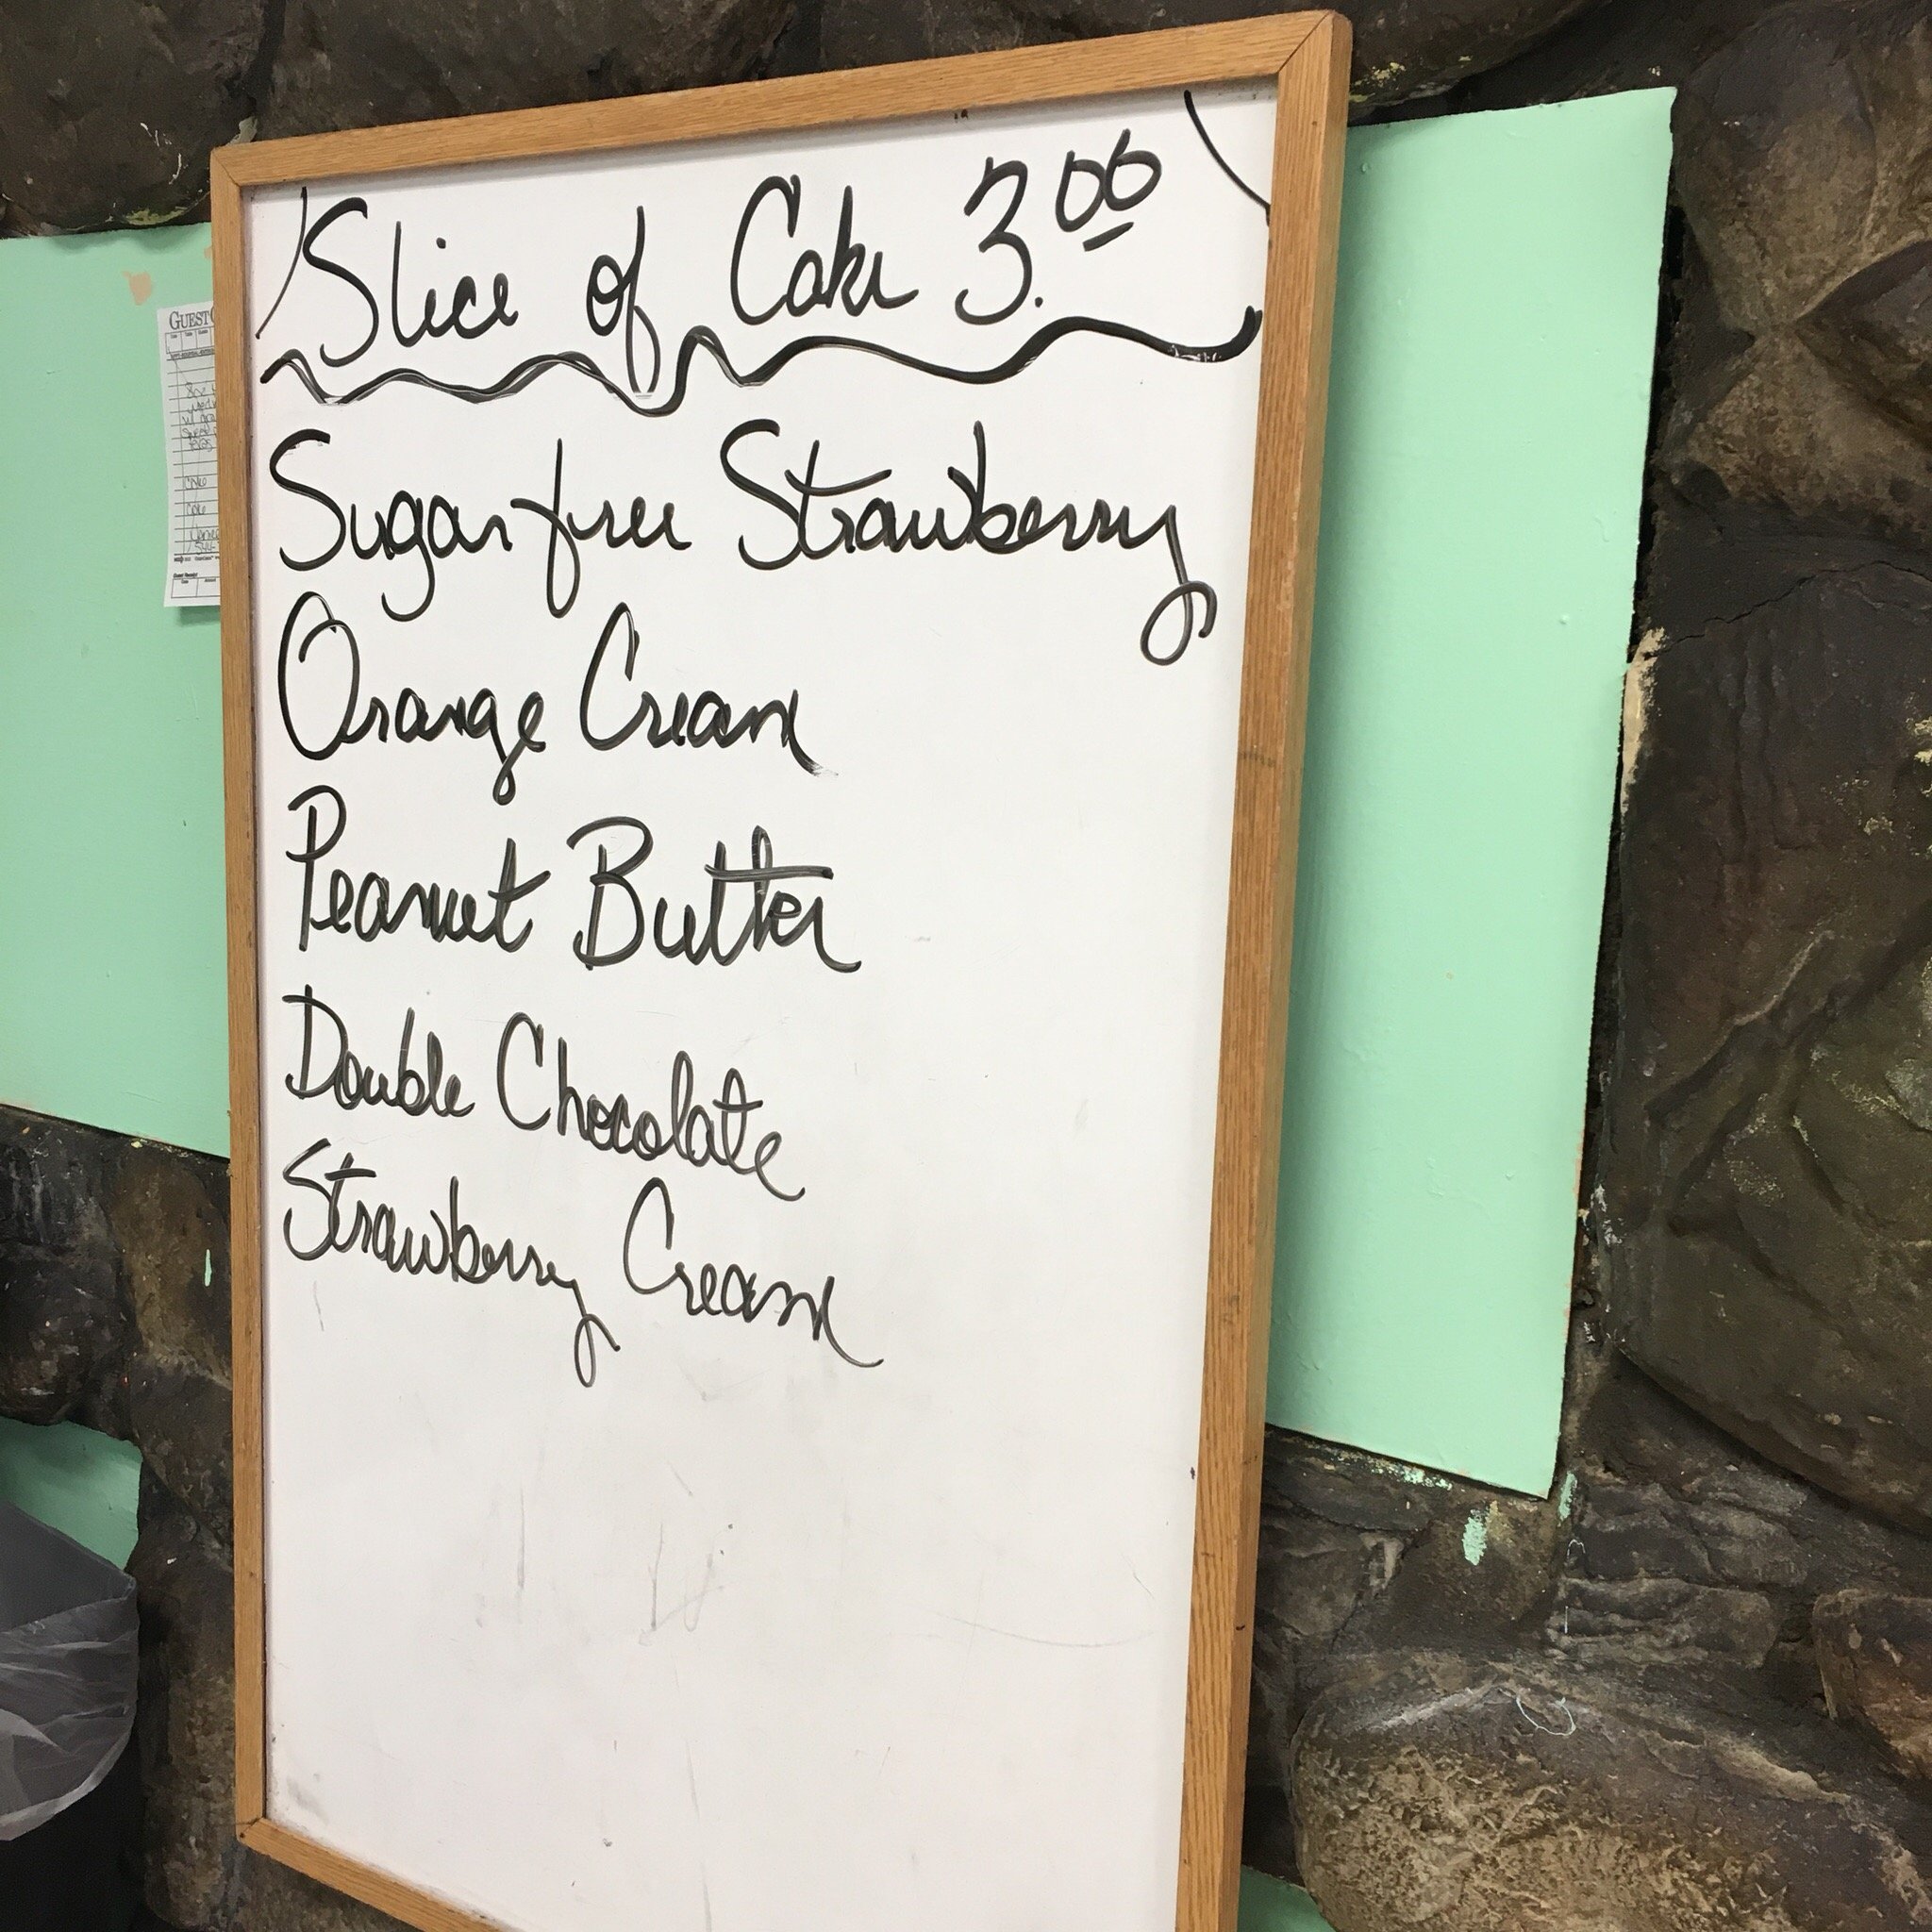 Slice of Cake 3.00
Sugar free Strawberry
Orange Cream
Peanut Butter
Double Chocolate
Strawberry Cream
GUEST